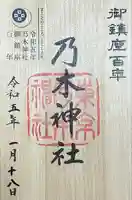 御鎮座百年
乃木神社
令和五年
乃木神社
御鎮座
百年
令和五年
一月十八日